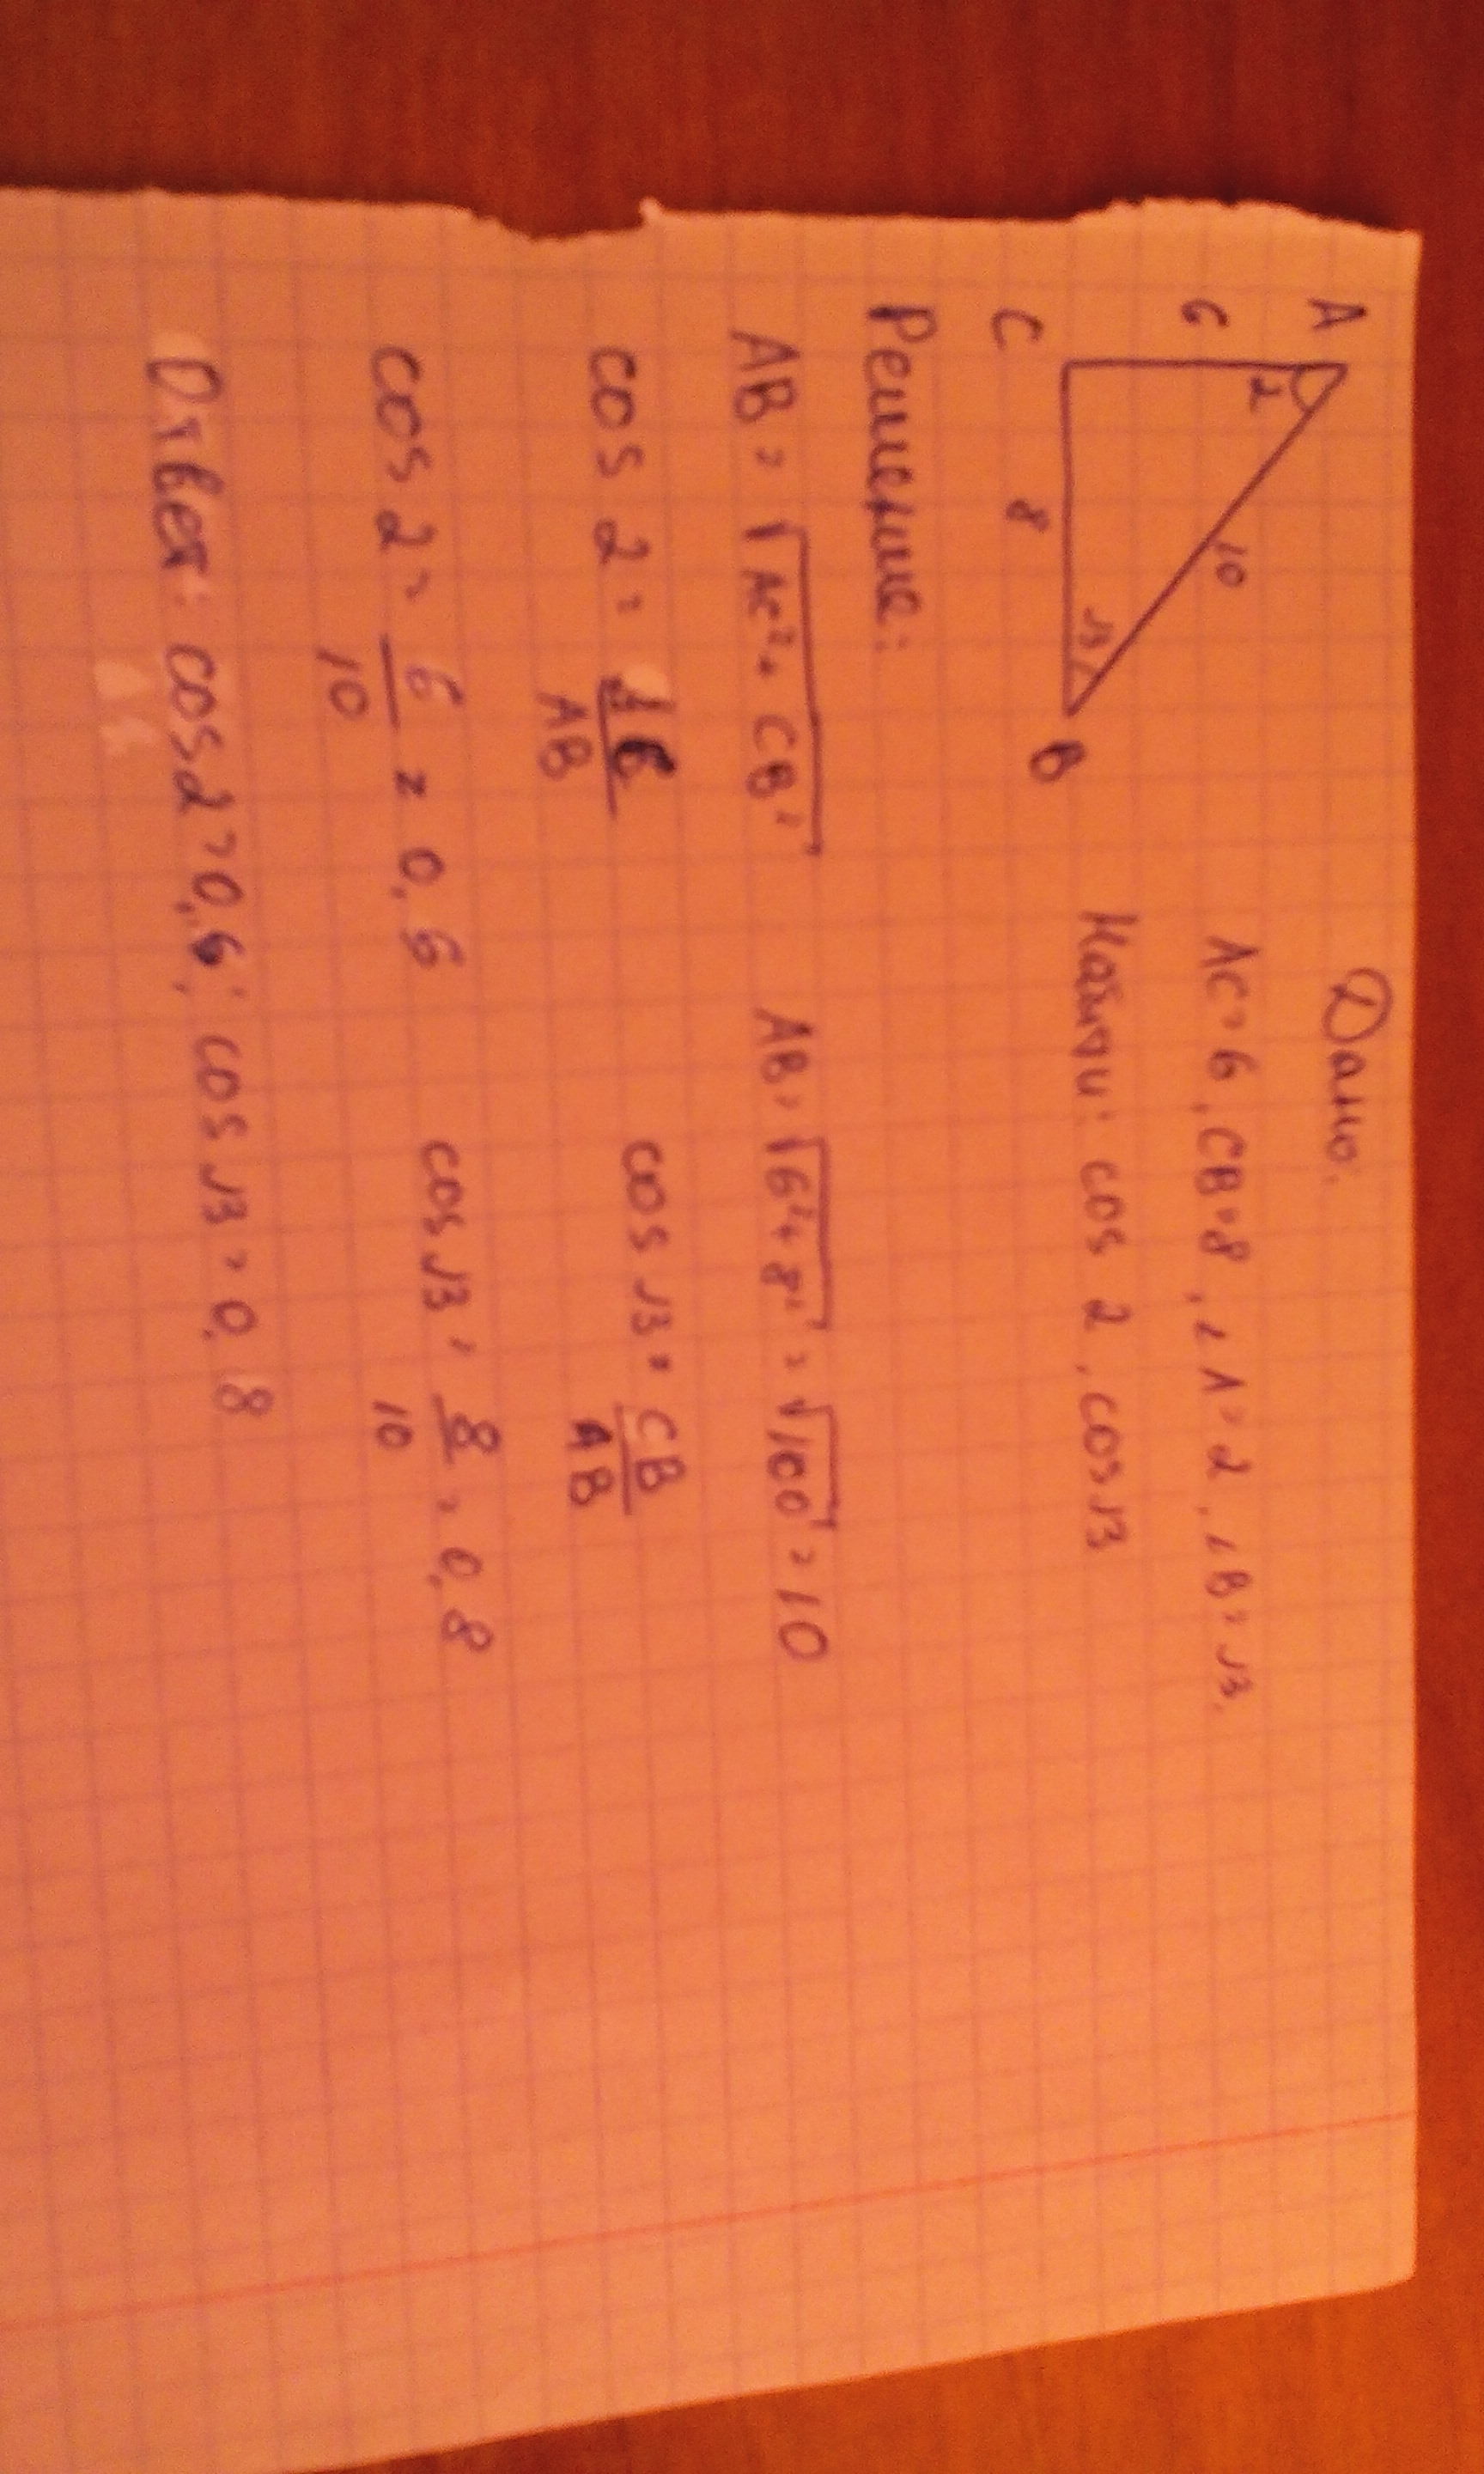 Дано:
A
6
10
AC = 6, CB = 8, ∠A = α, ∠B = β.
α
β
B
Найти: cos α, cos β
C
8
Решение:
AB = √AC² + CB² AB = √6² + 8² = √100 = 10
cos α = AC/AB cos β = CB/AB
cos α = 6/10 = 0,6 cos β = 8/10 = 0,8
Ответ: cos α = 0,6; cos β = 0,8